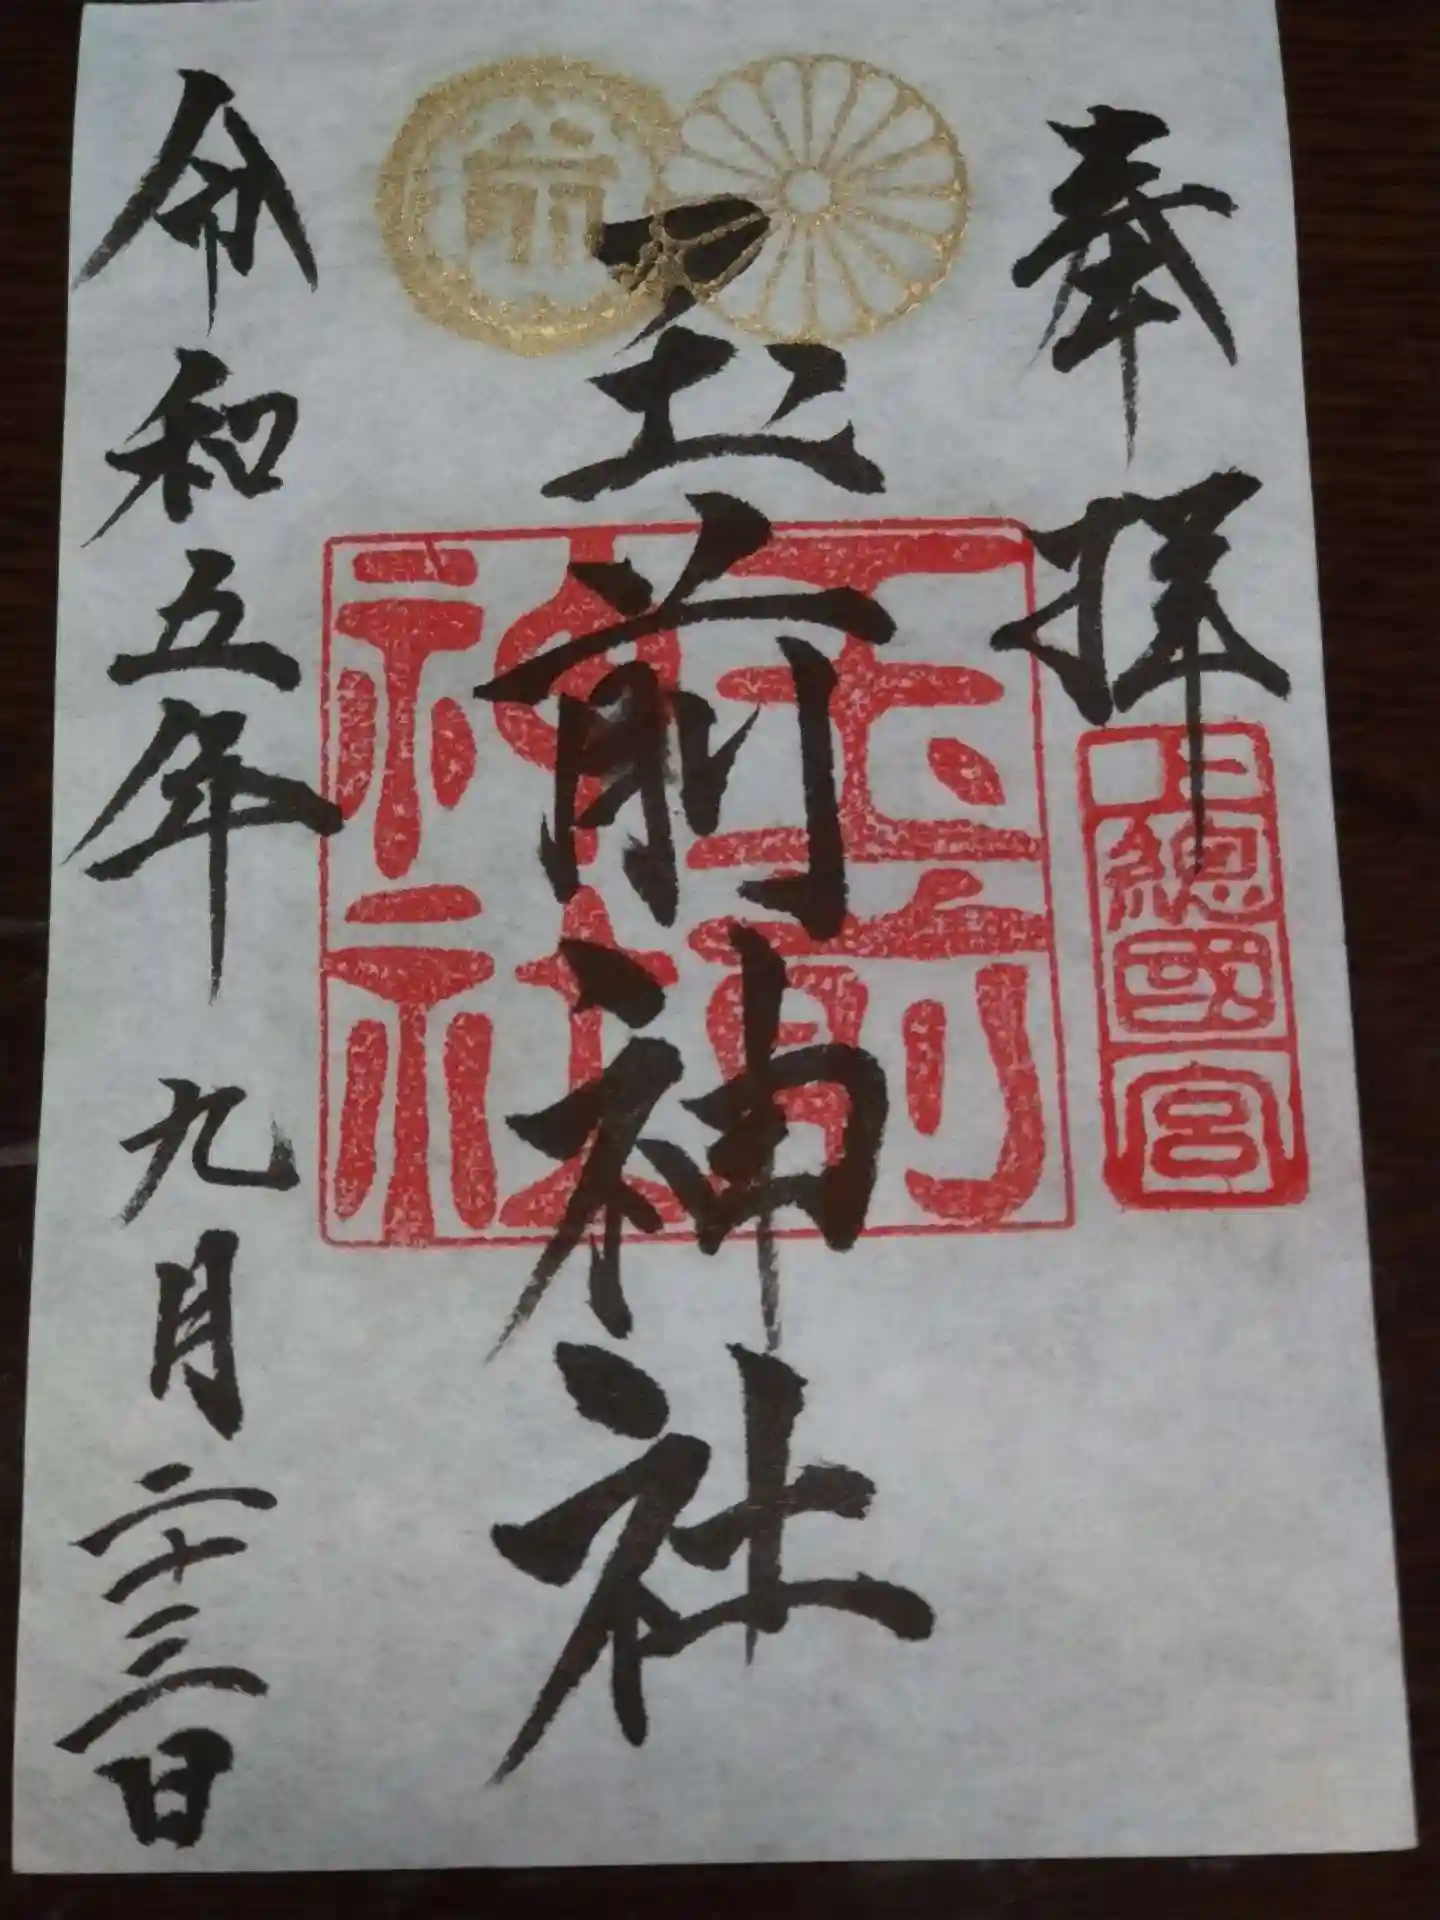 奉拝
上總國一宮
玉前神社
玉前
神社
令和五年 九月二十三日